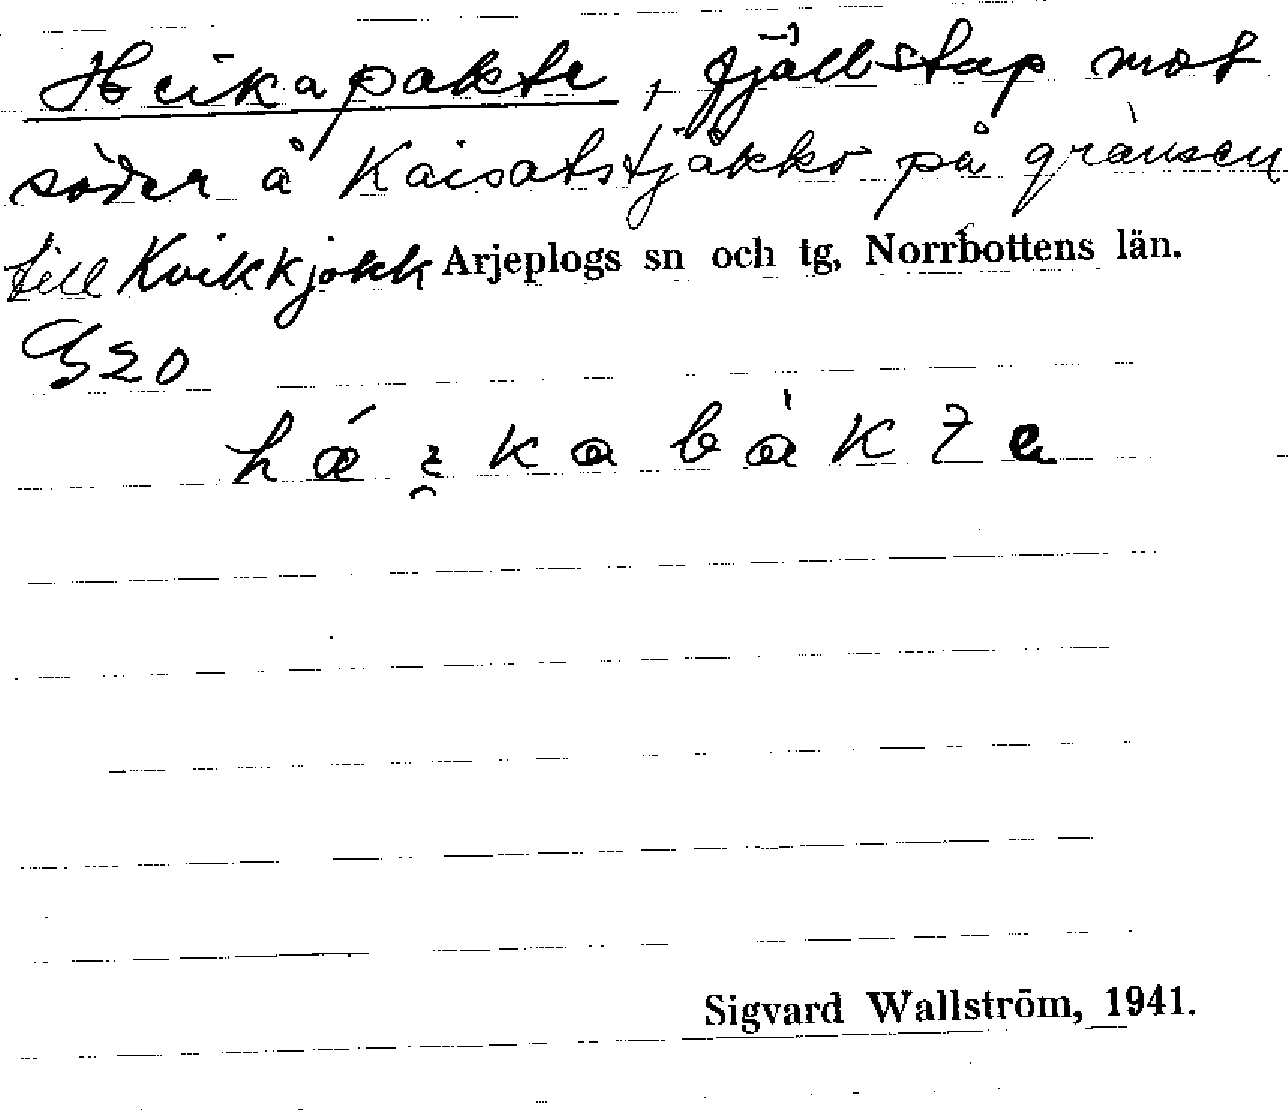 Heikapakte, fjällstup mot
söder å Kaisatstjåkko på gränsen
till Kvikkjokk Arjeplogs sn och tg, Norrbottens län.
G20
Sigvard Wallström, 1941.